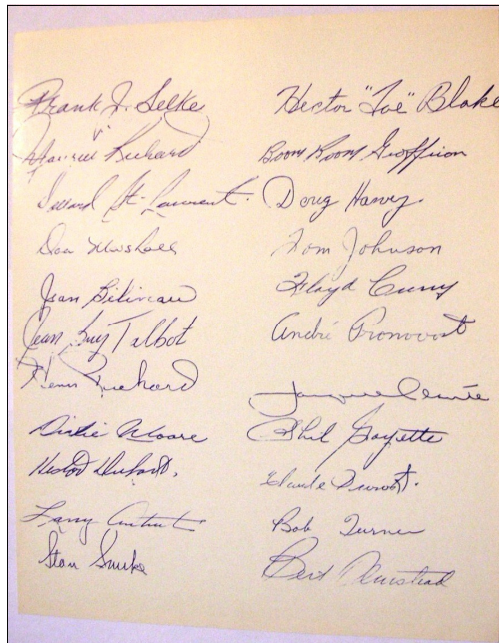 Frank J. Selke
Maurice Richard
Dollard St. Laurent.
Don Marshall
Jean Béliveau
Jean Guy Talbot
Henri Richard
Dickie Moore
Larry
Stan Smrke
Hector "Toe" Blake
Boom Boom Geoffrion
Doug Harvey.
Tom Johnson
Floyd Curry
André Pronovost
Jacques Plante
Phil Goyette
Claude Provost.
Bob Turner
Bert Olmstead